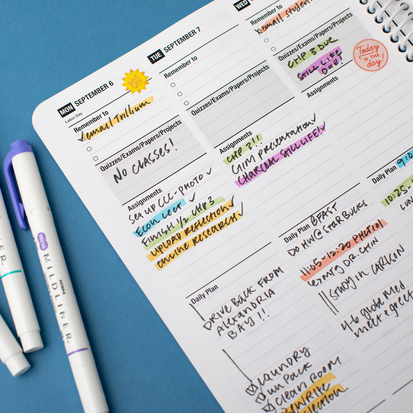 MON SEPTEMBER 6
Labor Day
Remember to
✓email trillium
Quizzes/Exams/Papers/Projects
NO CLASSES!
Assignments
Set up CCC-photo ✓
Econ Lect ✓
Finish 1/2 CHP 3
UPLOAD REFLECTION ✓
ONLINE RESEARCH ✓
Daily Plan
DRIVE BACK FROM
ALEXANDRIA
BAY!!
LAUNDRY
unpack
CLEAN ROOM
TUE SEPTEMBER 7
Remember to
Quizzes/Exams/Papers/Projects
Assignments
CHP 3!!
COMM PRESENTATION ✓
CHARCOAL STILL LIFE! ✓
Daily Plan
BFAST
DO HW@STARBUCKS
11:05-12:20 PHOTO!
STUDY IN CARLSON
4-6 globe med
meet & greet
WED
Remember to
Quizzes/Exams/Papers/Projects
CHP 3 DUE
STILL LIFE
DUE!
Assignments
Today
is the
day!
Daily Plan
MILDLINER